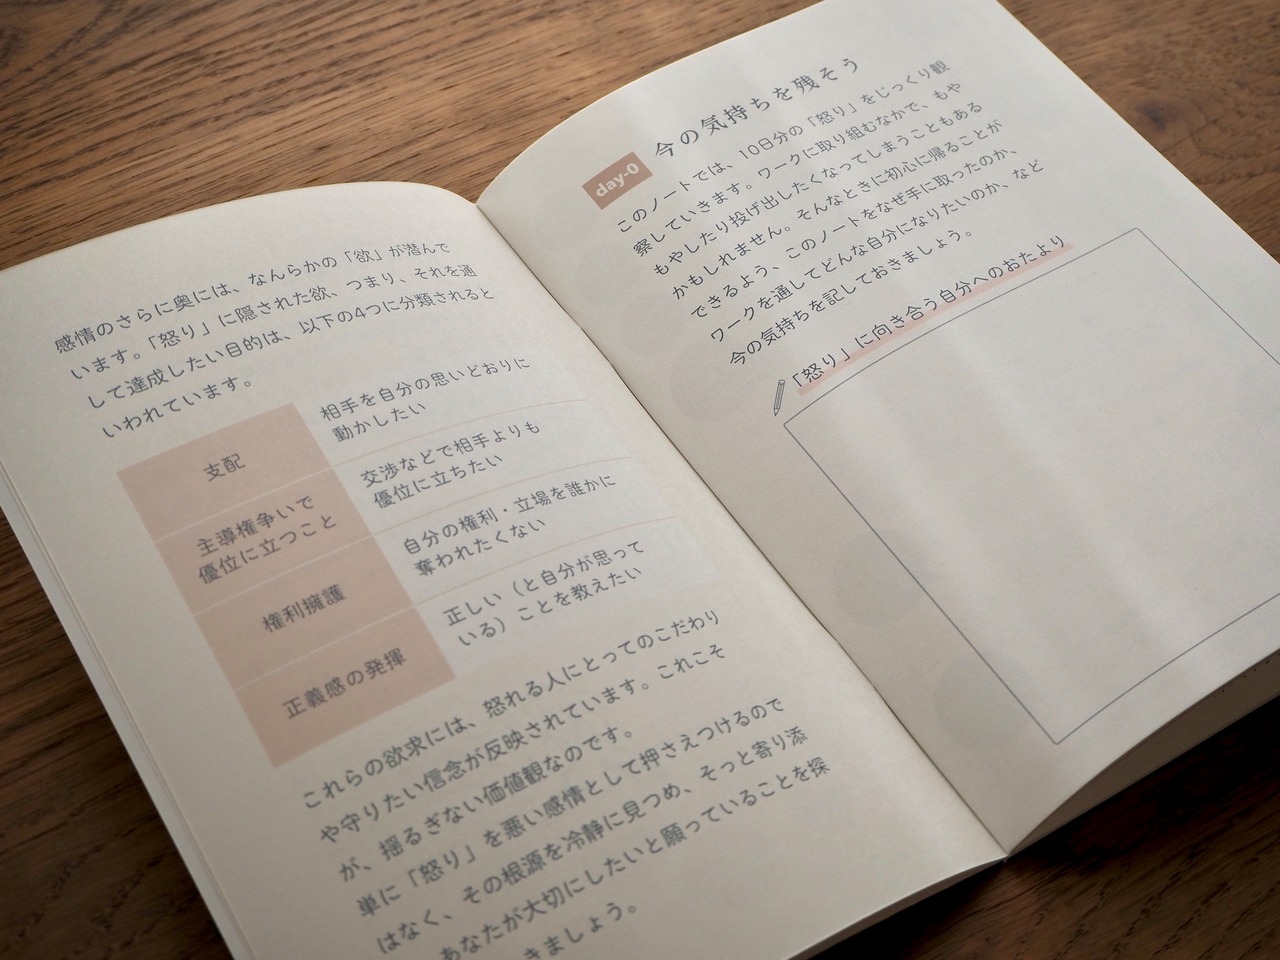 感情のさらに奥には、なんらかの「欲」が潜んで
います。「怒り」に隠された欲、つまり、それを通
して達成したい目的は、以下の4つに分類されると
いわれています。
支配
相手を自分の思いどおりに
動かしたい
主導権争いで
優位に立つこと
交渉などで相手よりも
優位に立ちたい
権利擁護
自分の権利・立場を誰かに
奪われたくない
正義感の発揮
正しい（と自分が思って
いる）ことを教えたい
これらの欲求には、怒れる人にとってのこだわり
や守りたい信念が反映されています。これこそ
が、揺るぎない価値観なのです。
単に「怒り」を悪い感情として押さえつけるので
はなく、その根源を冷静に見つめ、そっと寄り添
あなたが大切にしたいと願っていることを探
きましょう。
day-0
今の気持ちを残そう
このノートでは、10日分の「怒り」をじっくり観
察していきます。ワークに取り組むなかで、もや
もやしたり投げ出したくなってしまうこともある
かもしれません。そんなときに初心に帰ることが
できるよう、このノートをなぜ手に取ったのか、
ワークを通してどんな自分になりたいのか、など
今の気持ちを記しておきましょう。
「怒り」に向き合う自分へのおたより